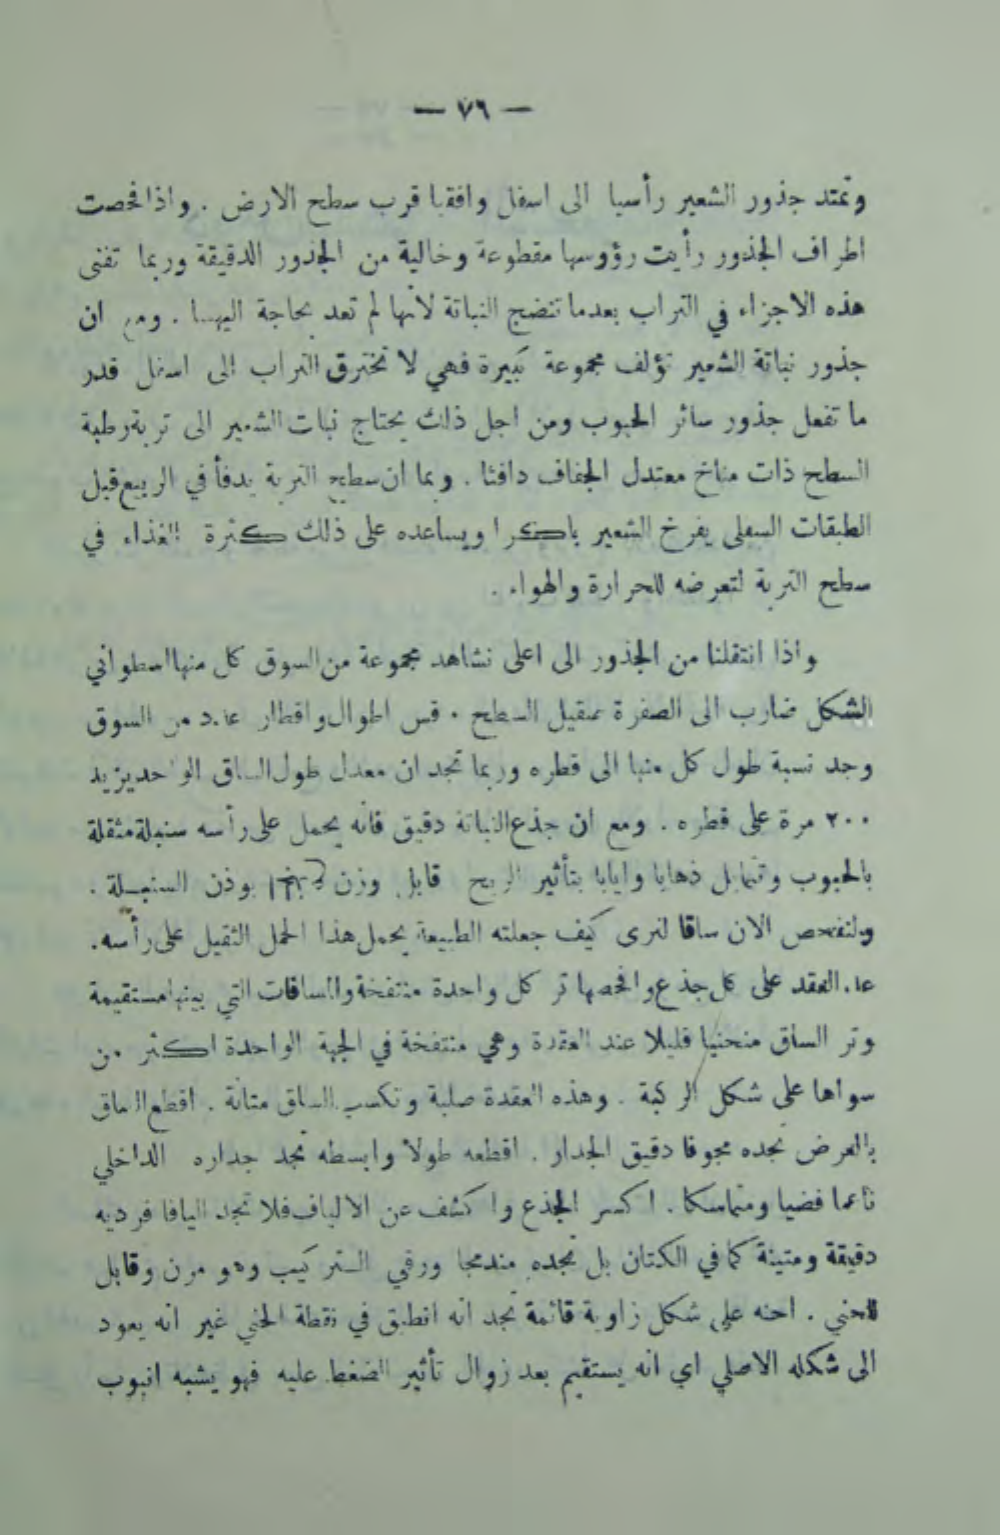 — ٧٦ —
وتمتد جذور الشعير رأسيا الى اسفل وافقيا قرب سطح الارض . واذا فحصت
اطراف الجذور رأيت رؤوسها مقطوعة وخالية من الجذور الدقيقة وربما تفنى
هذه الاجزاء في التراب بعدما تنضج النباتة لانها لم تعد بحاجة اليها . ومع ان
جذور نباتة الشعير تؤلف مجموعة كبيرة فهي لا تخترق التراب الى اسفل قدر
ما تفعل جذور سائر الحبوب ومن اجل ذلك يحتاج نبات الشعير الى تربة رطبة
السطح ذات مناخ معتدل الجفاف دافئا . وبما ان سطح التربة يدفأ في الربيع قبل
الطبقات السفلى يفرخ الشعير باكرا ويساعده على ذلك كثرة الغذاء في
سطح التربة لتعرضه للحرارة والهواء .
واذا انتقلنا من الجذور الى اعلى نشاهد مجموعة من السوق كل منها اسطواني
الشكل ضارب الى الصفرة صقيل السطح . قس اطوال واقطار عدد من السوق
وجد نسبة طول كل منها الى قطره وربما تجد ان معدل طول الساق الواحد يزيد
٢٠٠ مرة على قطره . ومع ان جذع النباتة دقيق فانه يحمل على رأسه سنبلة مثقلة
بالحبوب وتتمايل ذهابا وايابا بتأثير الريح قابل وزن بوذن السنبلة .
ولنفحص الان ساقا لنرى كيف جعلته الطبيعة يحمل هذا الحمل الثقيل على رأسه .
عد العقد على كل جذع وافحصها تر كل واحدة منتفخة والساقات التي بينها مستقيمة
وتر الساق منحنيا قليلا عند العقدة وهي منتفخة في الجهة الواحدة اكثر من
سواها على شكل الركبة . وهذه العقدة صلبة وتكسب الساق متانة . اقطع الساق
بالعرض تجده مجوفا دقيق الجدار . اقطعه طولا وابسطه تجد جداره الداخلي
ناعما فضيا ومتماسكا . اكسر الجذع واكشف عن الالياف فلا تجد اليافا فرديه
دقيقة ومتينة كما في الكتان بل تجده مندمجا ورقي التركيب وهو مرن وقابل
للحني . احنه على شكل زاوية قائمة تجد انه انطبق في نقطة الحني غير انه يعود
الى شكله الاصلي اي انه يستقيم بعد زوال تأثير الضغط عليه فهو يشبه انبوب